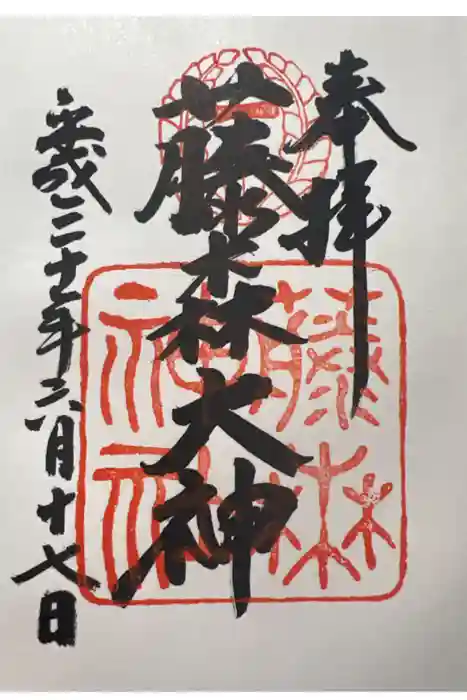 奉拝
藤森大神
平成三十年六月十七日
藤森
神社